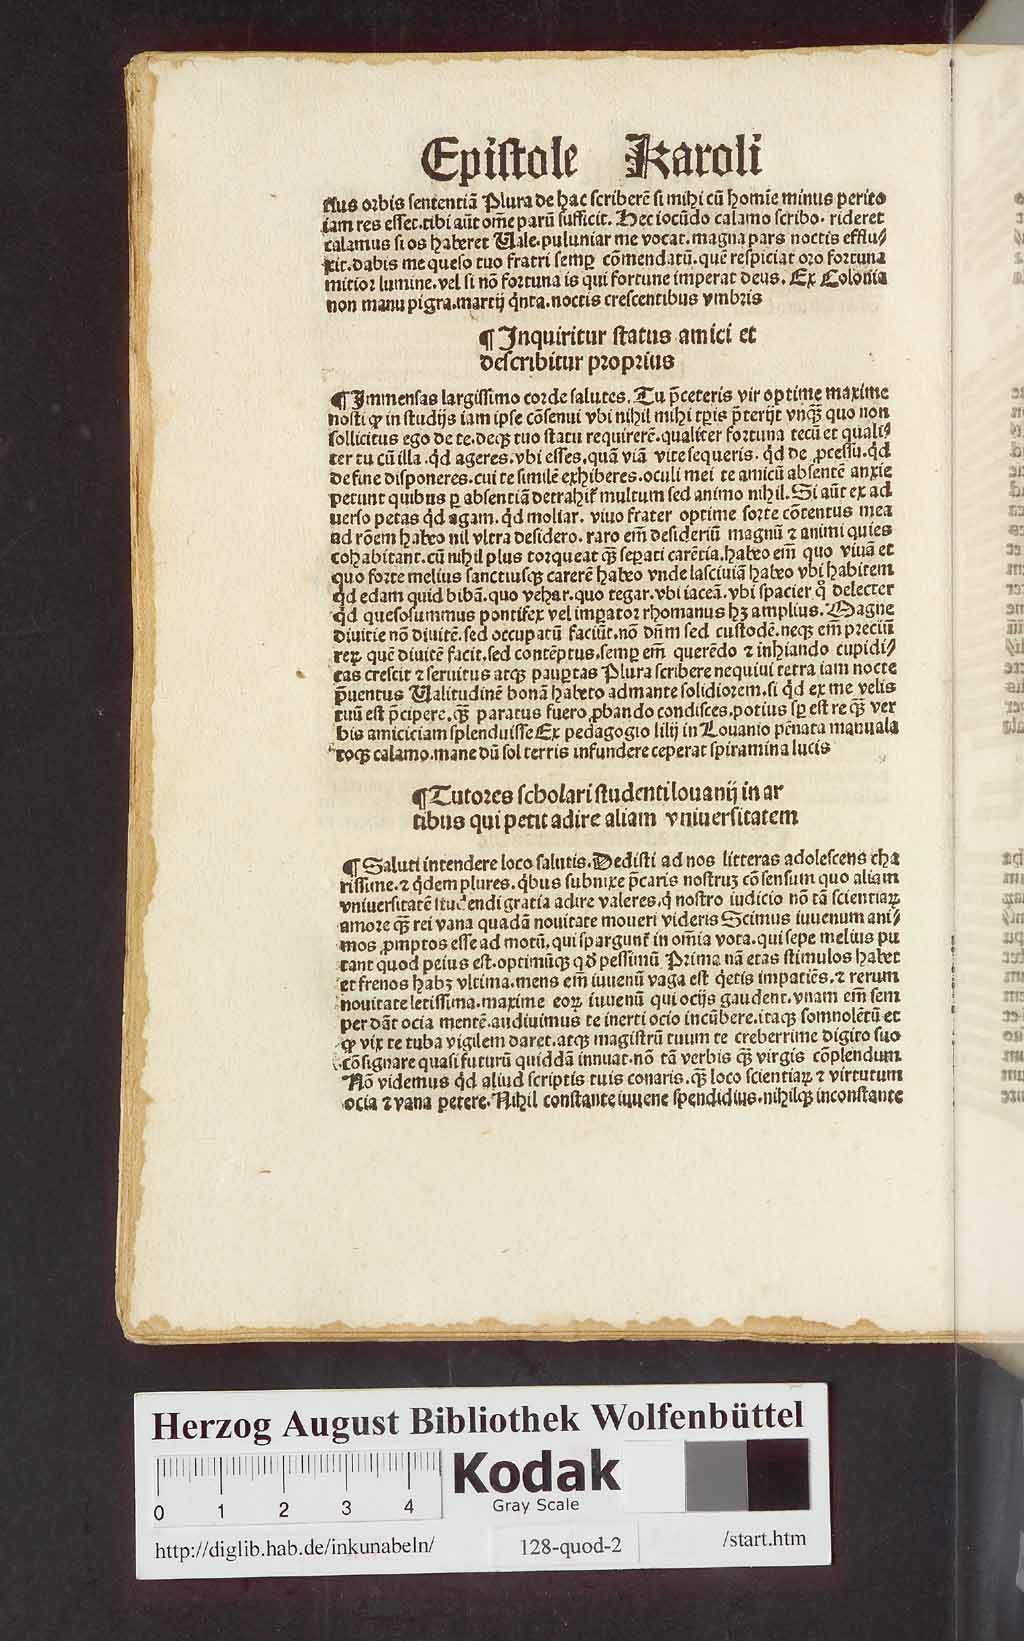 Epistole Karoli
tius orbis sententiā Plura de hac scriberē si mihi cū homīe minus perito
iam res esset.tibi aūt om̄e parū sufficit. Hec iocūdo calamo scribo. rideret
calamus si os haberet Uale.puluniar me vocat.magna pars noctis efflu/
xit.dabis me queso tuo fratri semꝑ cōmendatū.quē respiciat oro fortuna
mitior lumine.vel si nō fortuna is qui fortune imperat deus. Ex Colonia
non manu pigra.martij q̇nta.noctis crescentibus vmbris
¶ Inquiritur status amici et
describitur proprius
¶ Immensas largissimo corde salutes. Tu p̄ceteris vir optime maxime
nosti ꝙ in studijs iam ipse cōsenui vbi nihil mihi tꝑis p̄terijt vnꝗ̄ quo non
sollicitus ego de te.deqꝫ tuo statu requirerē.qualiter fortuna tecū et quali/
ter tu cū illa .q̇d ageres.vbi esses.quā viā vite sequeris. q̇d de ꝓcessu.q̇d
de fine disponeres.cui te similē exhiberes.oculi mei te amicū absentē anxie
petunt quibus ꝑ absentiā detrahit᷑ multum sed animo nihil. Si aūt ex ad
uerso petas q̇d agam. q̇d moliar. viuo frater optime sorte cōtentus mea
ad rōem habeo nil vltra desidero. raro em̄ desideriū magnū ⁊ animi quies
cohabitant. cū nihil plus torqueat ꝗ̄ seꝑati carētia.habeo em̄ quo viuā et
quo forte melius sanctiusqꝫ carerē habeo vnde lasciuiā habeo vbi habitem
q̇d edam quid bibā.quo vehar.quo tegar.vbi iaceā.vbi spacier qͦ delecter
q̇d queso summus pontifex vel imꝑator rhomanus hꝫ amplius. Magne
diuitie nō diuitē.sed occupatū faciūt.nō dn̄m sed custodē.neqꝫ em̄ preciū
reꝝ quē diuitē facit.sed contēptus.semꝑ em̄ querēdo ⁊ inhiando cupidi/
tas crescit ⁊ seruitus atqꝫ pauꝑtas Plura scribere nequiui tetra iam nocte
p̄uentus Ualitudinē bonā habeto admante solidiorem.si q̇d ex me velis
tuū est p̄cipere.ꝗ̄ paratus fuero ꝓbando condisces.potius sꝑ est re ꝗ̄ ver
bis amiciciam splenduisse Ex pedagogio lilij in Louanio pēnata manu ala
toqꝫ calamo.mane dū sol terris infundere ceperat spiramina lucis
¶ Tutores scholari studenti louanij in ar
tibus qui petit adire aliam vniuersitatem
¶ Saluti intendere loco salutis. Dedisti ad nos litteras adolescens cha
rissime.⁊ q̇dem plures. q̇bus subnixe p̄caris nostruꝫ cōsensum quo aliam
vniuersitatē studendi gratia adire valeres.q̇ nostro iudicio nō tā scientiaꝝ
amore ꝗ̄ rei vana quadā nouitate moueri videris Scimus iuuenum ani/
mos ꝓmptos esse ad motū. qui spargunt᷑ in om̄ia vota.qui sepe melius pu
tant quod peius est.optimūqꝫ qd̓ pessimū Prima nā etas stimulos habet
et frenos habꝫ vltima.mens em̄ iuuenū vaga est q̇etis impatiēs.⁊ rerum
nouitate letissima.maxime eoꝝ iuuenū qui ocijs gaudent.vnam em̄ sem
per dāt ocia mentē.audiuimus te inerti ocio incūbere.itaqꝫ somnolētū et
ꝙ vix te tuba vigilem daret.atqꝫ magistrū tuum te creberrime digito suo
cōsignare quasi futurū quiddā innuat.nō tā verbis ꝗ̄ virgis cōplendum
Nō videmus q̇d aliud scriptis tuis conaris.ꝗ̄ loco scientiaꝝ ⁊ virtutum
ocia ⁊ vana petere. Nihil constante iuuene spendidius.nihilqꝫ inconstante
Herzog August Bibliothek Wolfenbüttel
Kodak
Gray Scale
0 1 2 3 4
http://diglib.hab.de/inkunabeln/ 128-quod-2 /start.htm